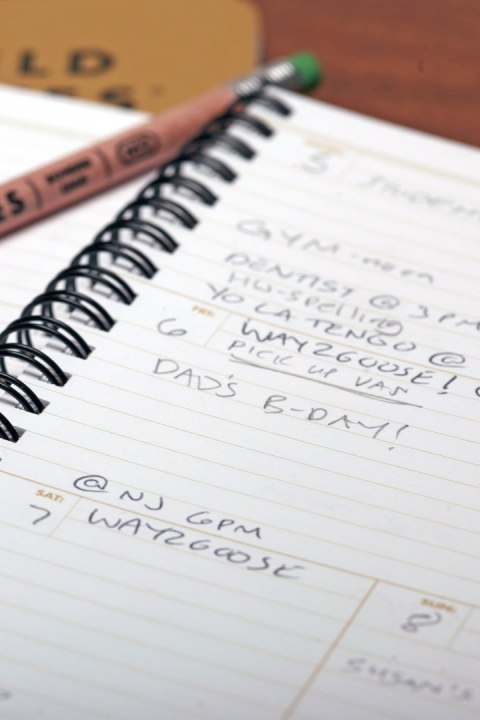 LD
ES
5
GYM-noon
DENTIST @ 3PM
HW-Spelling
YO LA TENGO @
FRI:
6
WAYZGOOSE!
PICK UP VAN
DAD'S B-DAY!
@ NJ 6PM
SAT:
7
WAYZGOOSE
SUN:
8
SUSAN'S